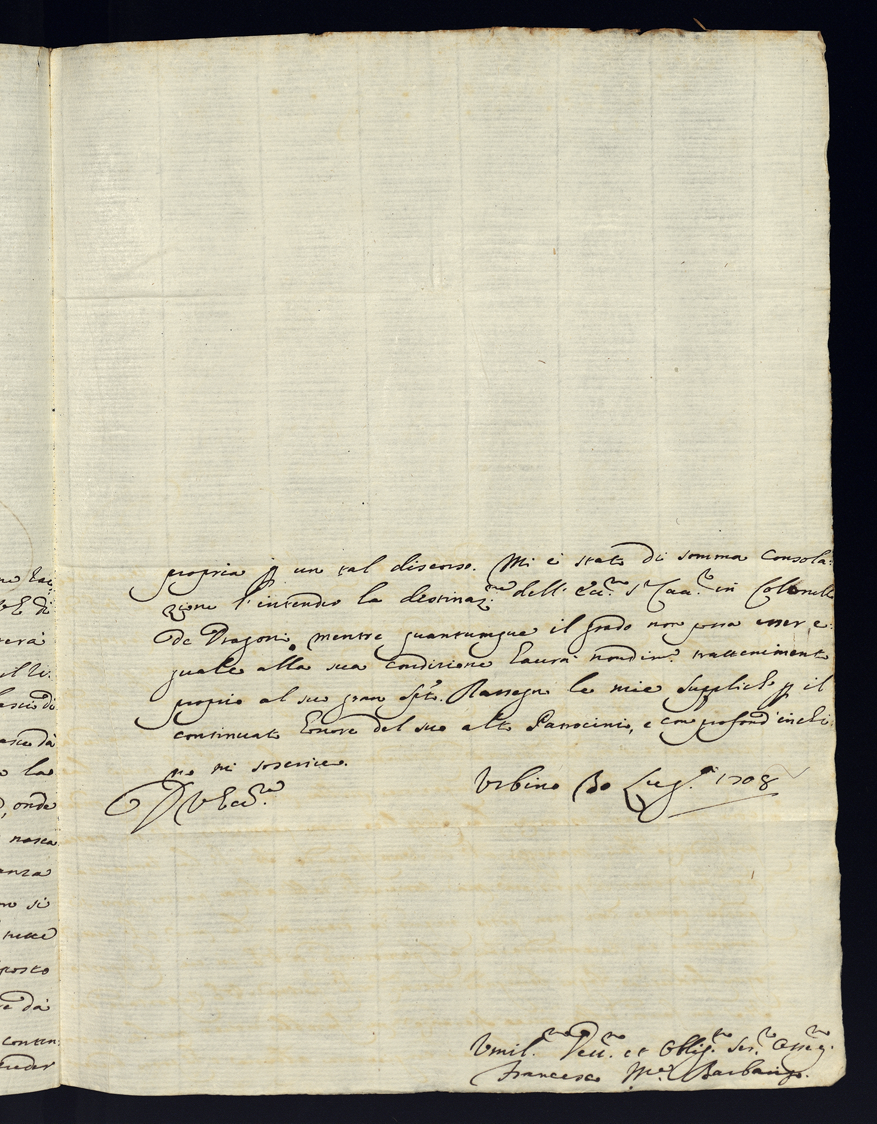 propria p un tal discorso. Mi è stato di somma consola:
zione l'intender la destinaz.ne dell' Ecc.mo S.r Cav.re in Colonello
de Dragoni, mentre quantunque il grado non possa esser e:
guale alla sua condizione haurà nondim.o trattenimento
proprio al suo gran Sp.to. Rassegno le mie suppliche p il
continuato honore del suo alto Patrocinio, e con profond' inchi:
no mi soscrivo.
D V Ecc.za
Urbino 30 Lug.o 1708
Umil.mo Dev.mo et Oblig.mo Ser.re Oss.mo
Francesco M.a
ne
di
verà
la
, onde
nasca
anza
si
posto
dà
conten: